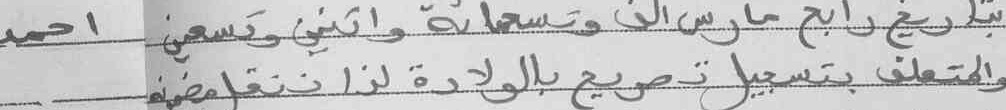 بتاريخ رابع مارس الف وتسعمائة واثنين وتسعين احمد
والمتعلق بتسجيل تصريح بالولادة لذا ننقل مضمنه